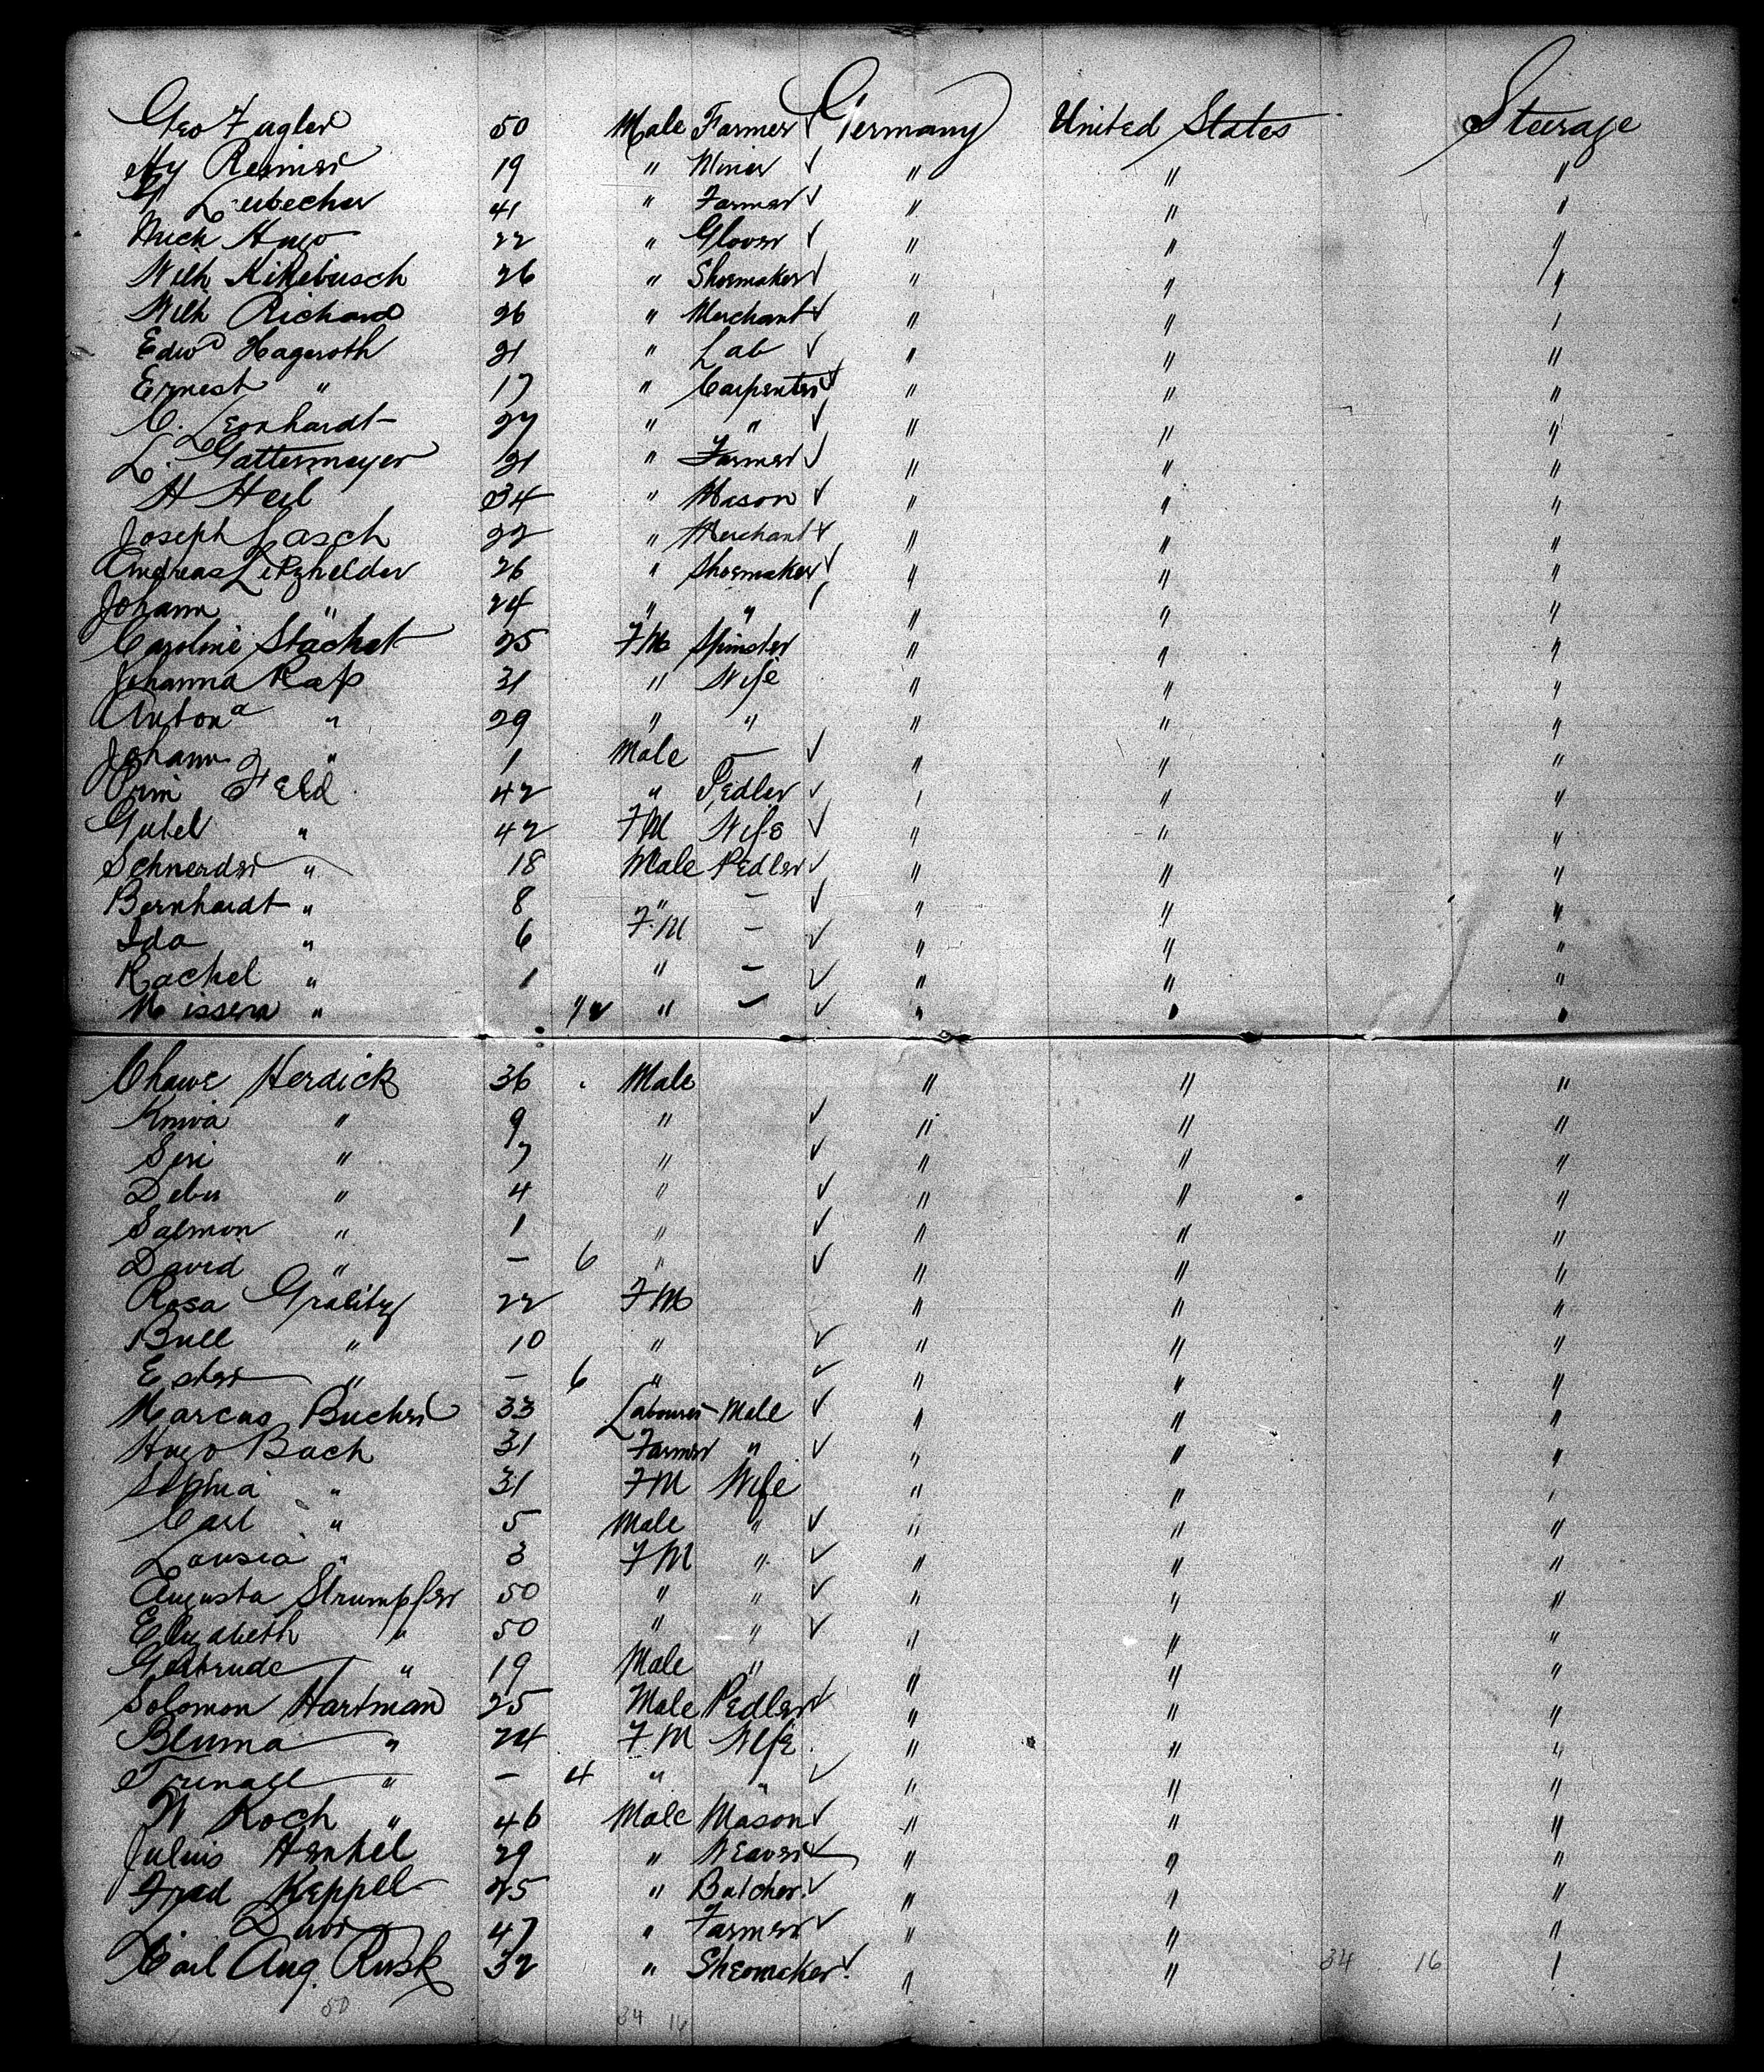 Geo Zagler 50 Male Farmer ✓ Germany United States Steerage
Hy Reimer 19 " Miner ✓ " " "
Leubecher 41 " Farmer ✓ " " "
Hugo 22 " Glover ✓ " " "
Wilh Kikebusch 26 " Shoemaker ✓ " " "
Wilh Richard 26 " Merchant ✓ " " "
Edwd Hageroth 21 " Lab ✓ " " "
Ernest " 17 " Carpenter ✓ " " "
C. Leonhardt 27 " " ✓ " " "
L. Gattermeyer 31 " Farmer ✓ " " "
H Heil 34 " Mason ✓ " " "
Joseph Lasch 22 " Merchant ✓ " " "
Andreas 26 " Shoemaker ✓ " " "
Johann " 24 " " ✓ " " "
Caroline Stachat 25 FM Spinster " " "
Johanna Rap 31 " Wife " " "
Antona " 29 " " " " "
Johann " 1 Male – ✓ " " "
Feld 42 " Pedler ✓ " " "
Gutel " 42 FM Wife ✓ " " "
Schnerder " 18 Male Pedler ✓ " " "
Bernhardt " 8 " – ✓ " " "
Ida " 6 FM – ✓ " " "
Rachel " 1 " – ✓ " " "
Nissera " 1/2 " – ✓ " " "
Chawe Herdick 36 Male " " "
" 9 " ✓ " " "
Seri " 7 " ✓ " " "
Debu " 4 " ✓ " " "
Salmon " 1 " ✓ " " "
David " – 6 " ✓ " " "
Rosa Grality 22 FM " " "
Bull " 10 " ✓ " " "
Ester " – 6 " ✓ " " "
Marcus Bucher 33 Labourer Male ✓ " " "
Hugo Bach 31 Farmer " ✓ " " "
Sophia " 31 FM Wife " " "
Carl " 5 Male " ✓ " " "
Lousia " 3 FM " ✓ " " "
Augusta Strumpfer 50 " " ✓ " " "
Elizabeth " 50 " " ✓ " " "
Gertrude " 19 Male " " " "
Solomon Hartman 25 Male Pedler ✓ " " "
Bluma " 24 FM Wife " " "
" – 4 " " ✓ " " "
W Koch " 46 Male Mason ✓ " " "
Julius Henkel 29 " Weaver ✓ " " "
Fred Keppel 25 " Butcher ✓ " " "
L. 47 " Farmer ✓ " " "
Carl Aug. Rusk 32 " Sheomaker ✓ " " 34 16 "
50 34 16